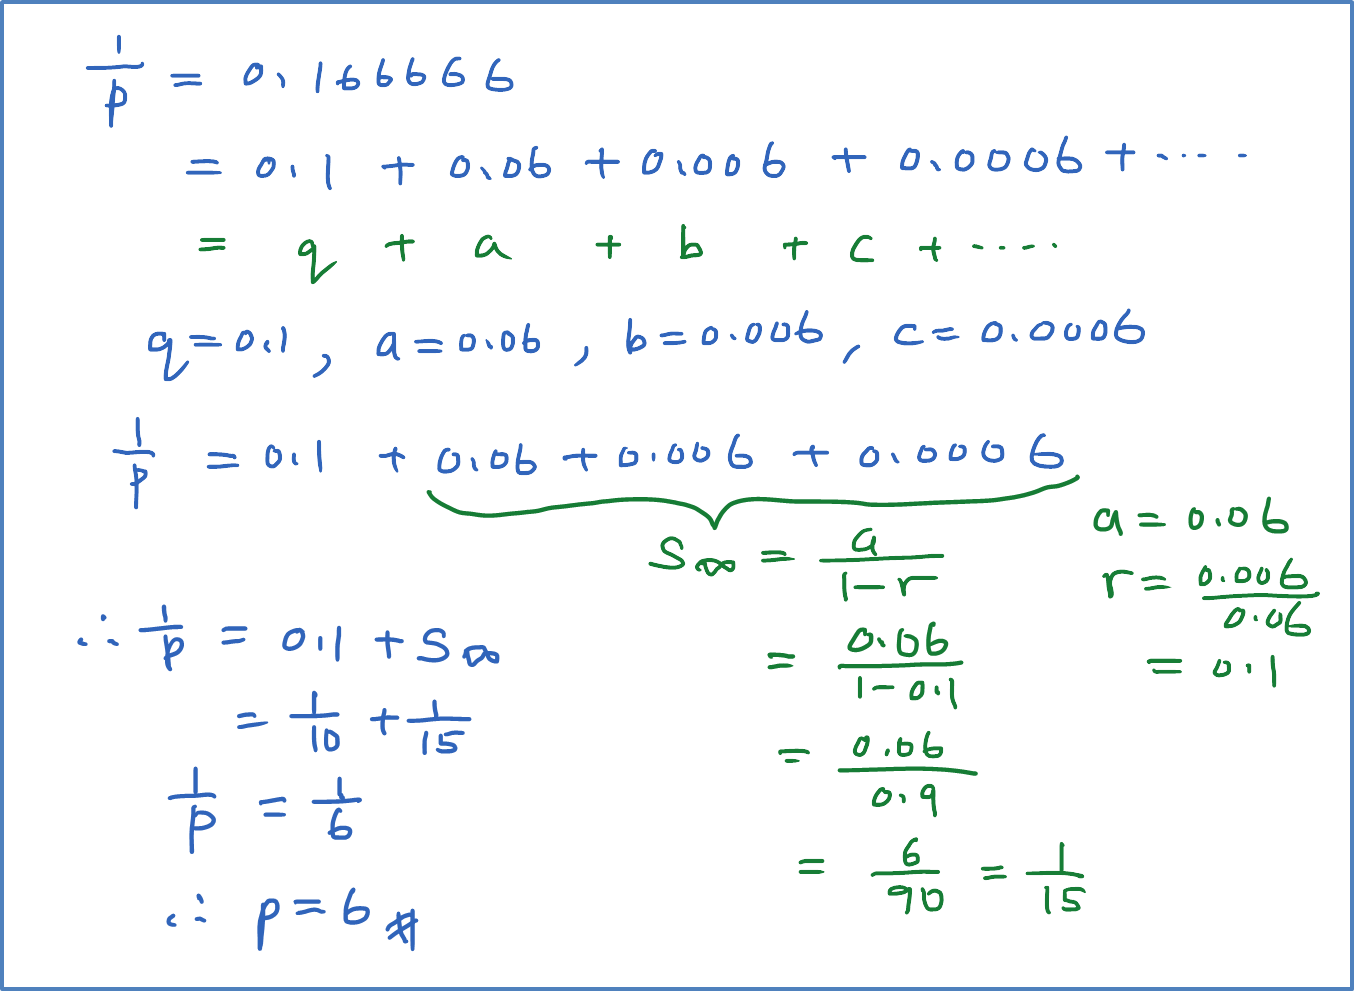 1/p = 0.166666
= 0.1 + 0.06 + 0.006 + 0.0006 + ....
= q + a + b + c + ....
q = 0.1 , a = 0.06 , b = 0.006 , c = 0.0006
1/p = 0.1 + 0.06 + 0.006 + 0.0006
S∞ = a/(1-r)
= 0.06/(1-0.1)
= 0.06/0.9
= 6/90 = 1/15
a = 0.06
r = 0.006/0.06
= 0.1
∴ 1/p = 0.1 + S∞
= 1/10 + 1/15
1/p = 1/6
∴ p = 6 #